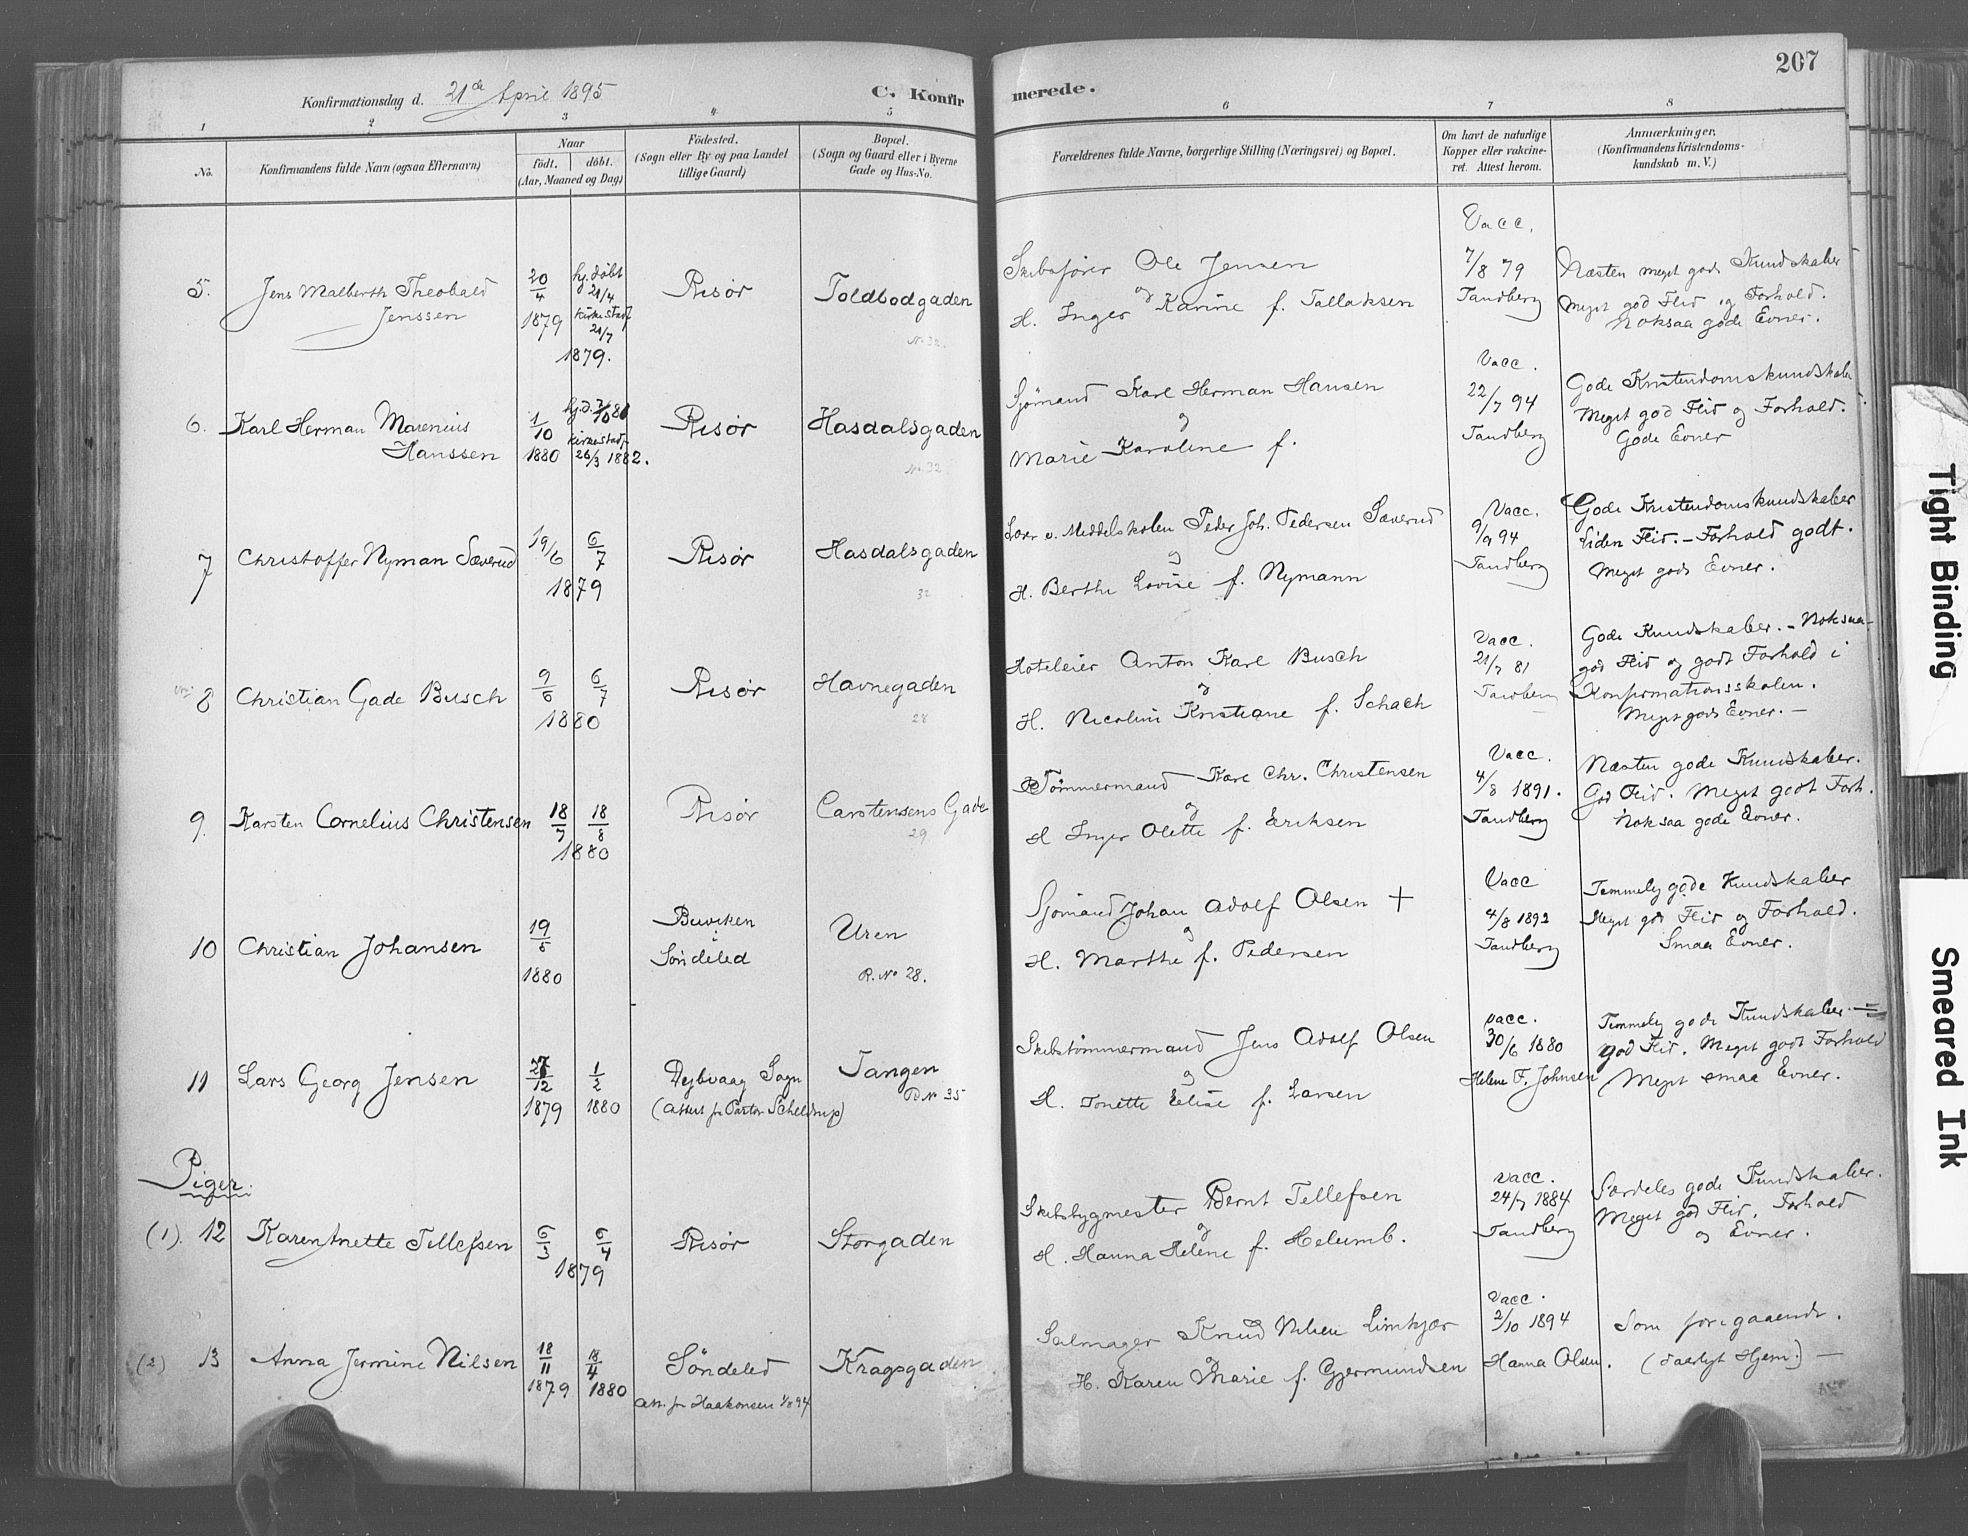 207
Konfirmationsdag d. 21de April 1895
C. Konfirmerede.
1 2 3 4 5 6 7 8
No.
Konfirmandens fulde Navn (ogsaa Efternavn)
Naar
födt. döbt.
(Aar, Maaned og Dag)
Födested.
(Sogn eller By og paa Landet
tillige Gaard)
Bopæl.
(Sogn og Gaard eller i Byerne
Gade og Hus-No.
Forældrenes fulde Navne, borgerlige Stilling (Næringsvei) og Bopæl.
Om havt de naturlige
Kopper eller vakcine-
ret. Attest herom.
Anmærkninger,
(Konfirmandens Kristendoms-
kundskab m. V.)
5. Jens Malberth Theobald
Jenssen
20/4 1879
hj. døbt
21/4
kirkestadf.
21/7
1879.
Risør
Toldbodgaden
No 32.
Skibsfører Ole Jensen
og
H. Inger Karine f. Tallaksen
Vacc.
7/8 79
Tandberg
Næsten meget gode Kundskaber
Meget god Flid og Forhold.
Noksaa gode Evner.
6. Karl Herman Marenius
Hanssen
1/10 1880
kirkestadf.
26/3 1882.
Risør
Hasdalsgaden
No 32
Sjømand Karl Herman Hansen
og
Marie Karoline f.
Vacc.
22/7 94
Tandberg
Gode Kristendomskundskaber
Meget god Flid og Forhold.
Gode Evner
7 Christoffer Nyman Sæverud
19/6 6/7
1879
Risør
Hasdalsgaden
32
Lærer v. Middelskolen Peder Joh. Pedersen Sæverud
og
H. Berthe Lovise f. Nymann
Vacc.
9/9 94
Tandberg
Gode Kristendomskundskaber
Liden Flid. - Forhold godt.
Meget gode Evner.
8 Christian Gade Busch
9/6 6/7
1880
Risør
Havnegaden
28
Hoteleier Anton Karl Busch
og
H. Nicolini Kristiane f. Schach
Vacc.
21/7 81
Tandberg
Gode Kundskaber. - Noksaa
god Flid og godt Forhold i
Konfirmationsskolen.
Meget gode Evner. -
9. Karsten Cornelius Christensen
18/7 18/8
1880
Risør
Carstensens Gade
29.
Tømmermand Karl Chr. Christensen
og
H Inger Olette f. Eriksen
Vacc.
4/8 1891.
Tandberg
Næsten gode Kundskaber.
God Flid. Meget godt Forh.
Noksaa gode Evner.
10 Christian Johansen
19/5
1880
Buviken
i
Søndeled
Uren
R. No 28.
Sjømand Johan Adolf Olsen +
og
H. Marthe f. Pedersen
Vacc
4/8 1892
Tandberg
Temmelig gode Kundskaber
Meget god Flid og Forhold.
Smaa Evner.
11 Lars Georg Jensen
27/12 1879
1/2 1880
Dybvaag Sogn
(Attest fr Pastor Scheldrup)
Tangen
R No 35
Skibstømmermand Jens Adolf Olsen
og
H. Tonette Elise f. Larsen
vacc.
30/6 1880
Helene F. Johnsen
Temmelig gode Kundskaber. -
god Flid. Meget godt Forhold
Meget smaa Evner.
Piger.
(1). 12 Karen Anette Tellefsen
6/3 6/4
1879
Risør
Storgaden
Skibsbygmester Bernt Tellefsen
og
H. Hanna Helene f. Helumb.
vacc.
24/7 1884
Tandberg
Særdeles gode Kundskaber.
Meget god Flid, Forhold
og Evner.
(2) 13 Anna Jermine Nilsen
18/11 1879
18/4 1880
Søndeled
Att. fr Haakonsen 1/8 94
Kragsgaden
Salmager Knud Nilsen Limkjær
og
H. Karen Marie f. Gjermundsen
vacc.
2/10 1894
Hanna Olsen.
Som foregaaende.
(daarligt Hjem.) -
Tight Binding
Smeared Ink